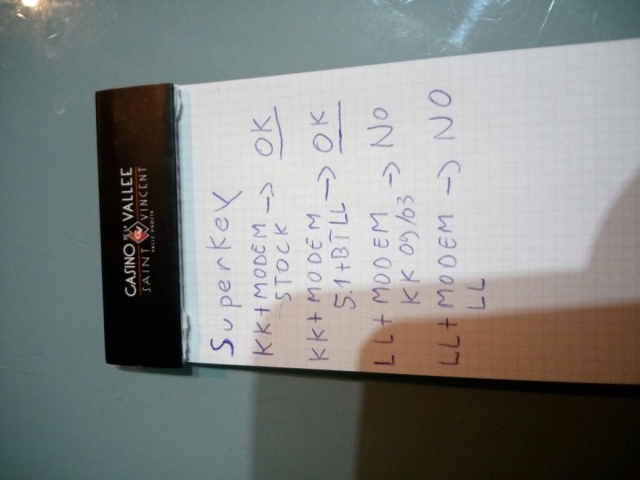 CASINO DE LA VALLEE
SAINT VINCENT
Superkey
KK+MODEM -> OK
STOCK
KK+MODEM -> OK
5.1+BTLL
LL+MODEM -> NO
KK 09/03
LL+MODEM -> NO
LL